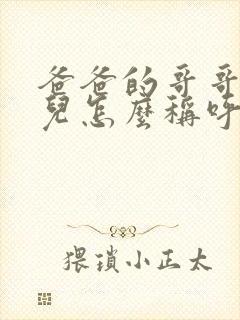 爸爸的哥哥
兒怎麼稱呼
猥瑣小正太